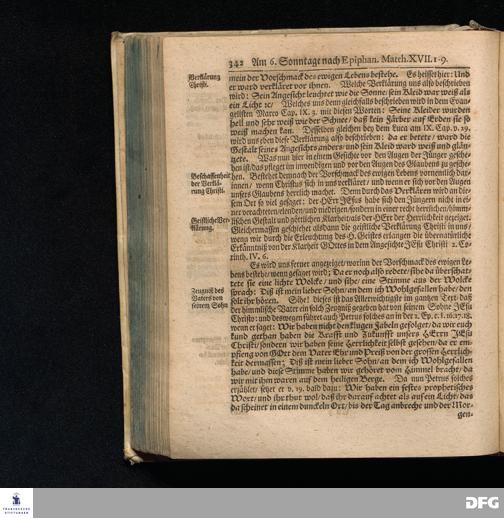 342 Am 6. Sonntage nach Epiphan. Matth. XVII. 1-9.
Verklärung
Christi.
mein der Vorschmack des ewigen Lebens bestehe. Es heisset hier: Und
er ward verkläret vor ihnen. Welche Verklärung uns also beschrieben
wird: Sein Angesicht leuchtet wie die Sonne/ sein Kleid war weiß als
ein Licht ꝛc/ Welches uns denn gleichfalls beschrieben wird in dem Evan-
gelisten Marco Cap. IX. 3. mit diesen Worten: Seine Kleider wurden
hell und sehr weiß wie der Schnee/ daß kein Färber auf Erden sie so
weiß machen kan. Desselben gleichen bey dem Luca am IX. Cap. v. 29.
wird uns eben diese Verklärung also beschrieben: da er betete/ ward die
Gestalt seines Angesichts anders/ und sein Kleid ward weiß und glän-
tzete. Was nun hier in einem Gesichte vor den Augen der Jünger gesche-
hen ist/ das pfleget im inwendigen und vor den Augen des Glaubens zu gesche-
Beschaffenheit
der Verklä-
rung Christi.
hen. Bestehet demnach der Vorschmack des ewigen Lebens vornemlich dar-
innen/ wenn Christus sich in uns verkläret/ und wenn er sich vor den Augen
unsers Glaubens herrlich machet. Denn durch das Verklären wird an die-
sem Ort so viel gesaget: der HErr JEsus habe sich den Jüngern nicht in ei-
ner verachteten/ elenden/ und niedrigen/ sondern in einer recht herrlichen/ himm-
Geistliche Ver-
klärung.
lischen Gestalt und göttlichen Klarheit/ als der HErr der Herrlichkeit gezeiget.
Gleichermassen geschiehet alsdann die geistliche Verklärung Christi in uns/
wenn wir durch die Erleuchtung des H. Geistes erlangen die übernatürliche
Erkäntniß von der Klarheit GOttes in dem Angesichte JEsu Christi 2. Co-
rinth. IV. 6.
Es wird uns ferner angezeiget/ worinn der Vorschmack des ewigen Le-
bens bestehe/ wenn gesaget wird; Da er noch also redete/ sihe da überschat-
tete sie eine lichte Wolcke/ und sihe/ eine Stimme aus der Wolcke
Zeugniß des
Vaters von
seinem Sohn
sprach: Diß ist mein lieber Sohn/ an dem ich Wohlgefallen habe/ den
solt ihr hören. Sihe! dieses ist das Allerwichtigste im gantzen Text/ daß
der himmlische Vater ein solch Zeugniß gegeben hat von seinem Sohne JEsu
Christo: und deswegen führet auch Petrus solches an in der 2. Ep. c. 1. 16. 17. 18.
wenn er saget: Wir haben nicht den klugen Fabeln gefolget/ da wir euch
kund gethan haben die Krafft und Zukunfft unsers HErrn JEsu
Christi/ sondern wir haben seine Herrlichkeit selbst gesehen/ da er em-
pfieng von GOtt dem Vater Ehr und Preiß von der grossen Herrlich-
keit dermassen; Diß ist mein lieber Sohn/ an dem ich Wohlgefallen
habe/ und diese Stimme haben wir gehöret vom Himmel bracht/ da
wir mit ihm waren auf dem heiligen Berge. Da nun Petrus solches
erzählet/ setzet er v. 19. bald dazu: Wir haben ein festes prophetisches
Wort/ und ihr thut wol/ daß ihr darauf achtet als auf ein Licht/ das
da scheinet in einem dunckeln Ort/ bis der Tag anbreche und der Mor-
gen-
FRANCKESCHE
STIFTUNGEN
DFG